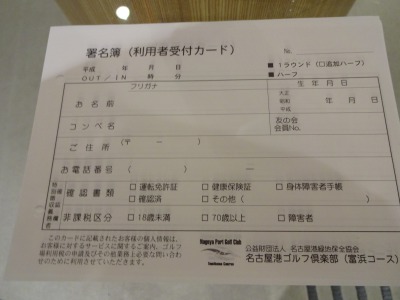 署名簿（利用者受付カード） No.
平成　　年　　月　　日
OUT／IN　　時　　分
■ 1ラウンド（□追加ハーフ）
■ ハーフ
フリガナ
お名前
生年月日
大正
昭和　　年　　月　　日
平成
コンペ名
友の会
会員No.
ご住所 （〒　　－　　）
お電話番号 （　　　）　　－
確認書類 □ 運転免許証 □ 健康保険証 □ 身体障害者手帳
□ 確認済 □ その他（　　　）
非課税区分 □ 18歳未満 □ 70歳以上 □ 障害者
このカードに記載されたお客様の個人情報は、
お客様に対するサービスに関するご案内、ゴルフ
場利用税の申請及びその他業務上必要な問い合わせ
のために利用させていただきます。
Nagoya Port Golf Club
Tomihama Course
公益財団法人 名古屋港緑地保全協会
名古屋港ゴルフ倶楽部（富浜コース）